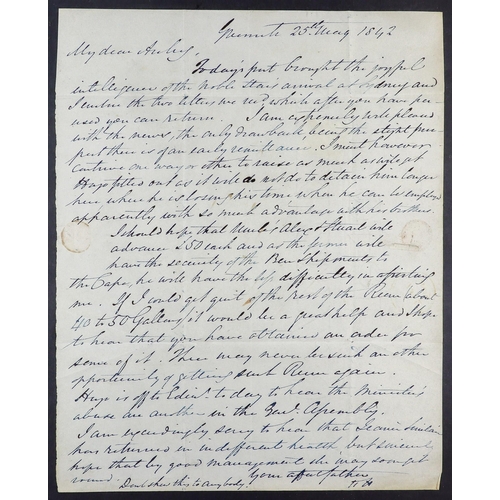 25th May 1842
My dear
Today's post brought the joyful
intelligence of the noble Stairs arrival at Sydney and
I enclose the two letters we recd which after you have per
used you can return. I am extremely well pleased
with the news, the only drawback being the slight pros
pect there is of an early remittance. I must however
contrive one way or other to raise as much as will get
Hugo fitted out as it will do not do to detain him longer
here where he is losing his time when he can be employed
apparently with so much advantage with his brothers.
I should hope that Uncles Alexr & Stuart will
advance £50 each and as the former will
have the security of the Beer Shipments to
the Cape, he will have the less difficulty in assisting
me. If I could get quit of the rest of the Rum (about
40 to 50 Gallons) it would be a great help and I hope
to hear that you have obtained an order for
some of it. There may never be such an other
opportunity of getting such Rum again.
Hugo is off to Edinr. to day to hear the Ministers
abuse one another in the Genl. Assembly.
I am exceedingly sorry to hear that Jeanie Sinclair
has returned in indifferent health but sincerely
hope that by good management she may soon get
round. Your affect father
Dont show this to anybody.